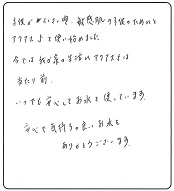 子供が小さい時、敏感肌の子供のためにと
アクアスよと使い始めました
今では我が家の生活にアクアスは
当たり前、
いつでも安心してお水を使っています。
安心で気持ちの良いお水を
ありがとうございます。